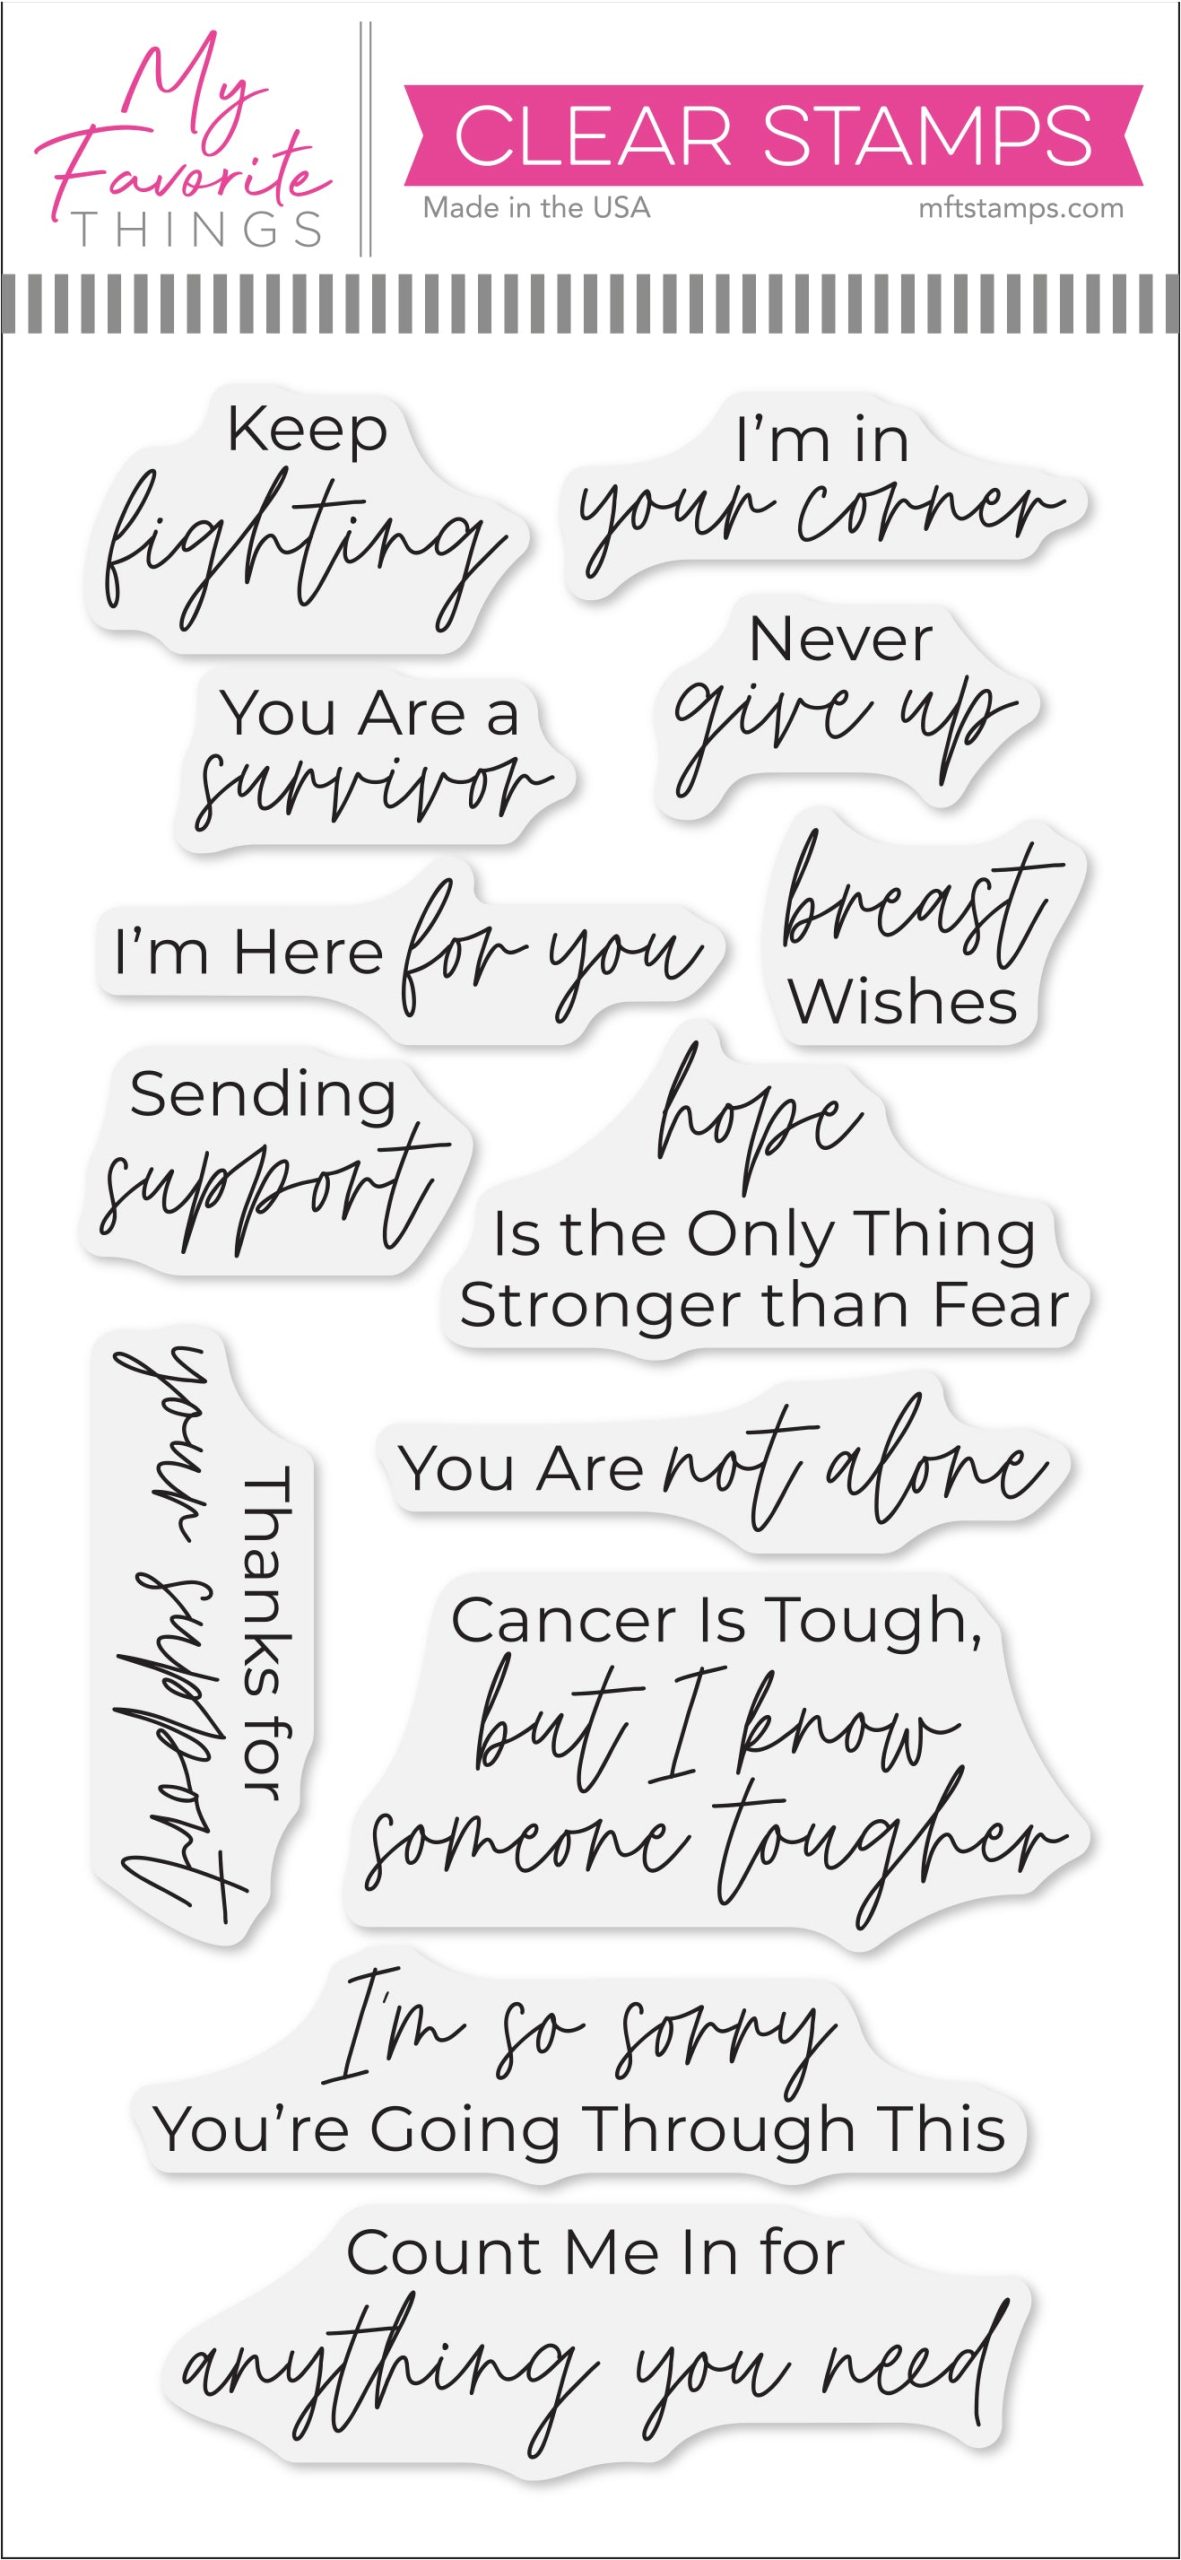 My
Favorite
THINGS
CLEAR STAMPS
Made in the USA
mftstamps.com
Keep
fighting
I'm in
your corner
You Are a
survivor
Never
give up
I'm Here for you
breast
Wishes
Sending
support
hope
Is the Only Thing
Stronger than Fear
Thanks for
your support
You Are not alone
Cancer Is Tough,
but I know
someone tougher
I'm so sorry
You're Going Through This
Count Me In for
anything you need